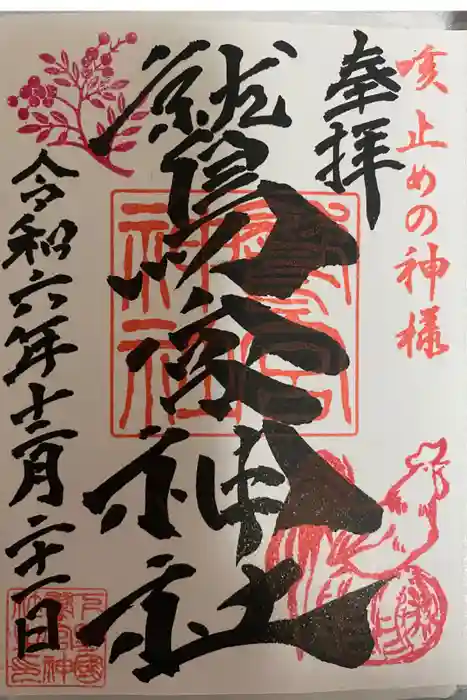 咳止めの神様
奉拝
鷲宮神社
令和六年十二月二十一日